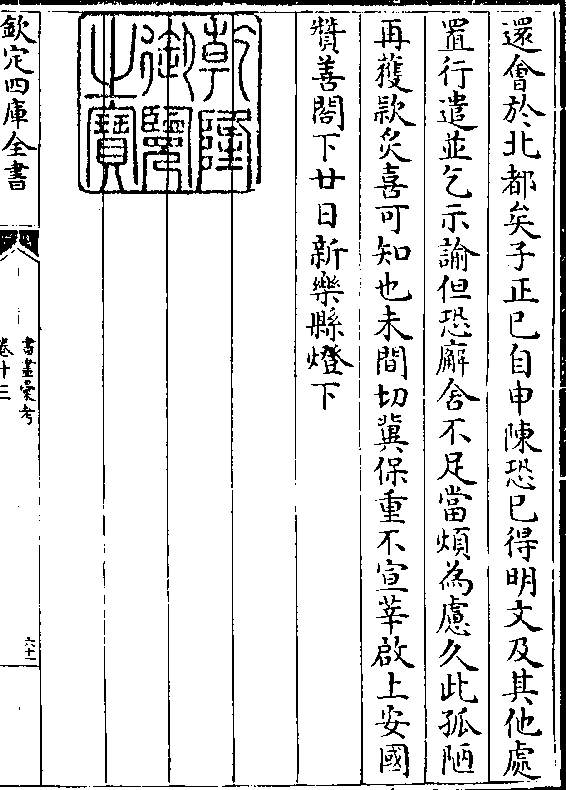 還會於北都矣子正已自申陳恐已得明文及其他處
置行遣並乞示諭但恐廨舍不足當煩為慮久此孤陋
再獲款炙喜可知也未間切冀保重不宣莘啟上安國
贊善閤下廿日新樂縣燈下
乾隆
御覽
之寶
欽定四庫全書
書畫彙考
卷十三
六十一